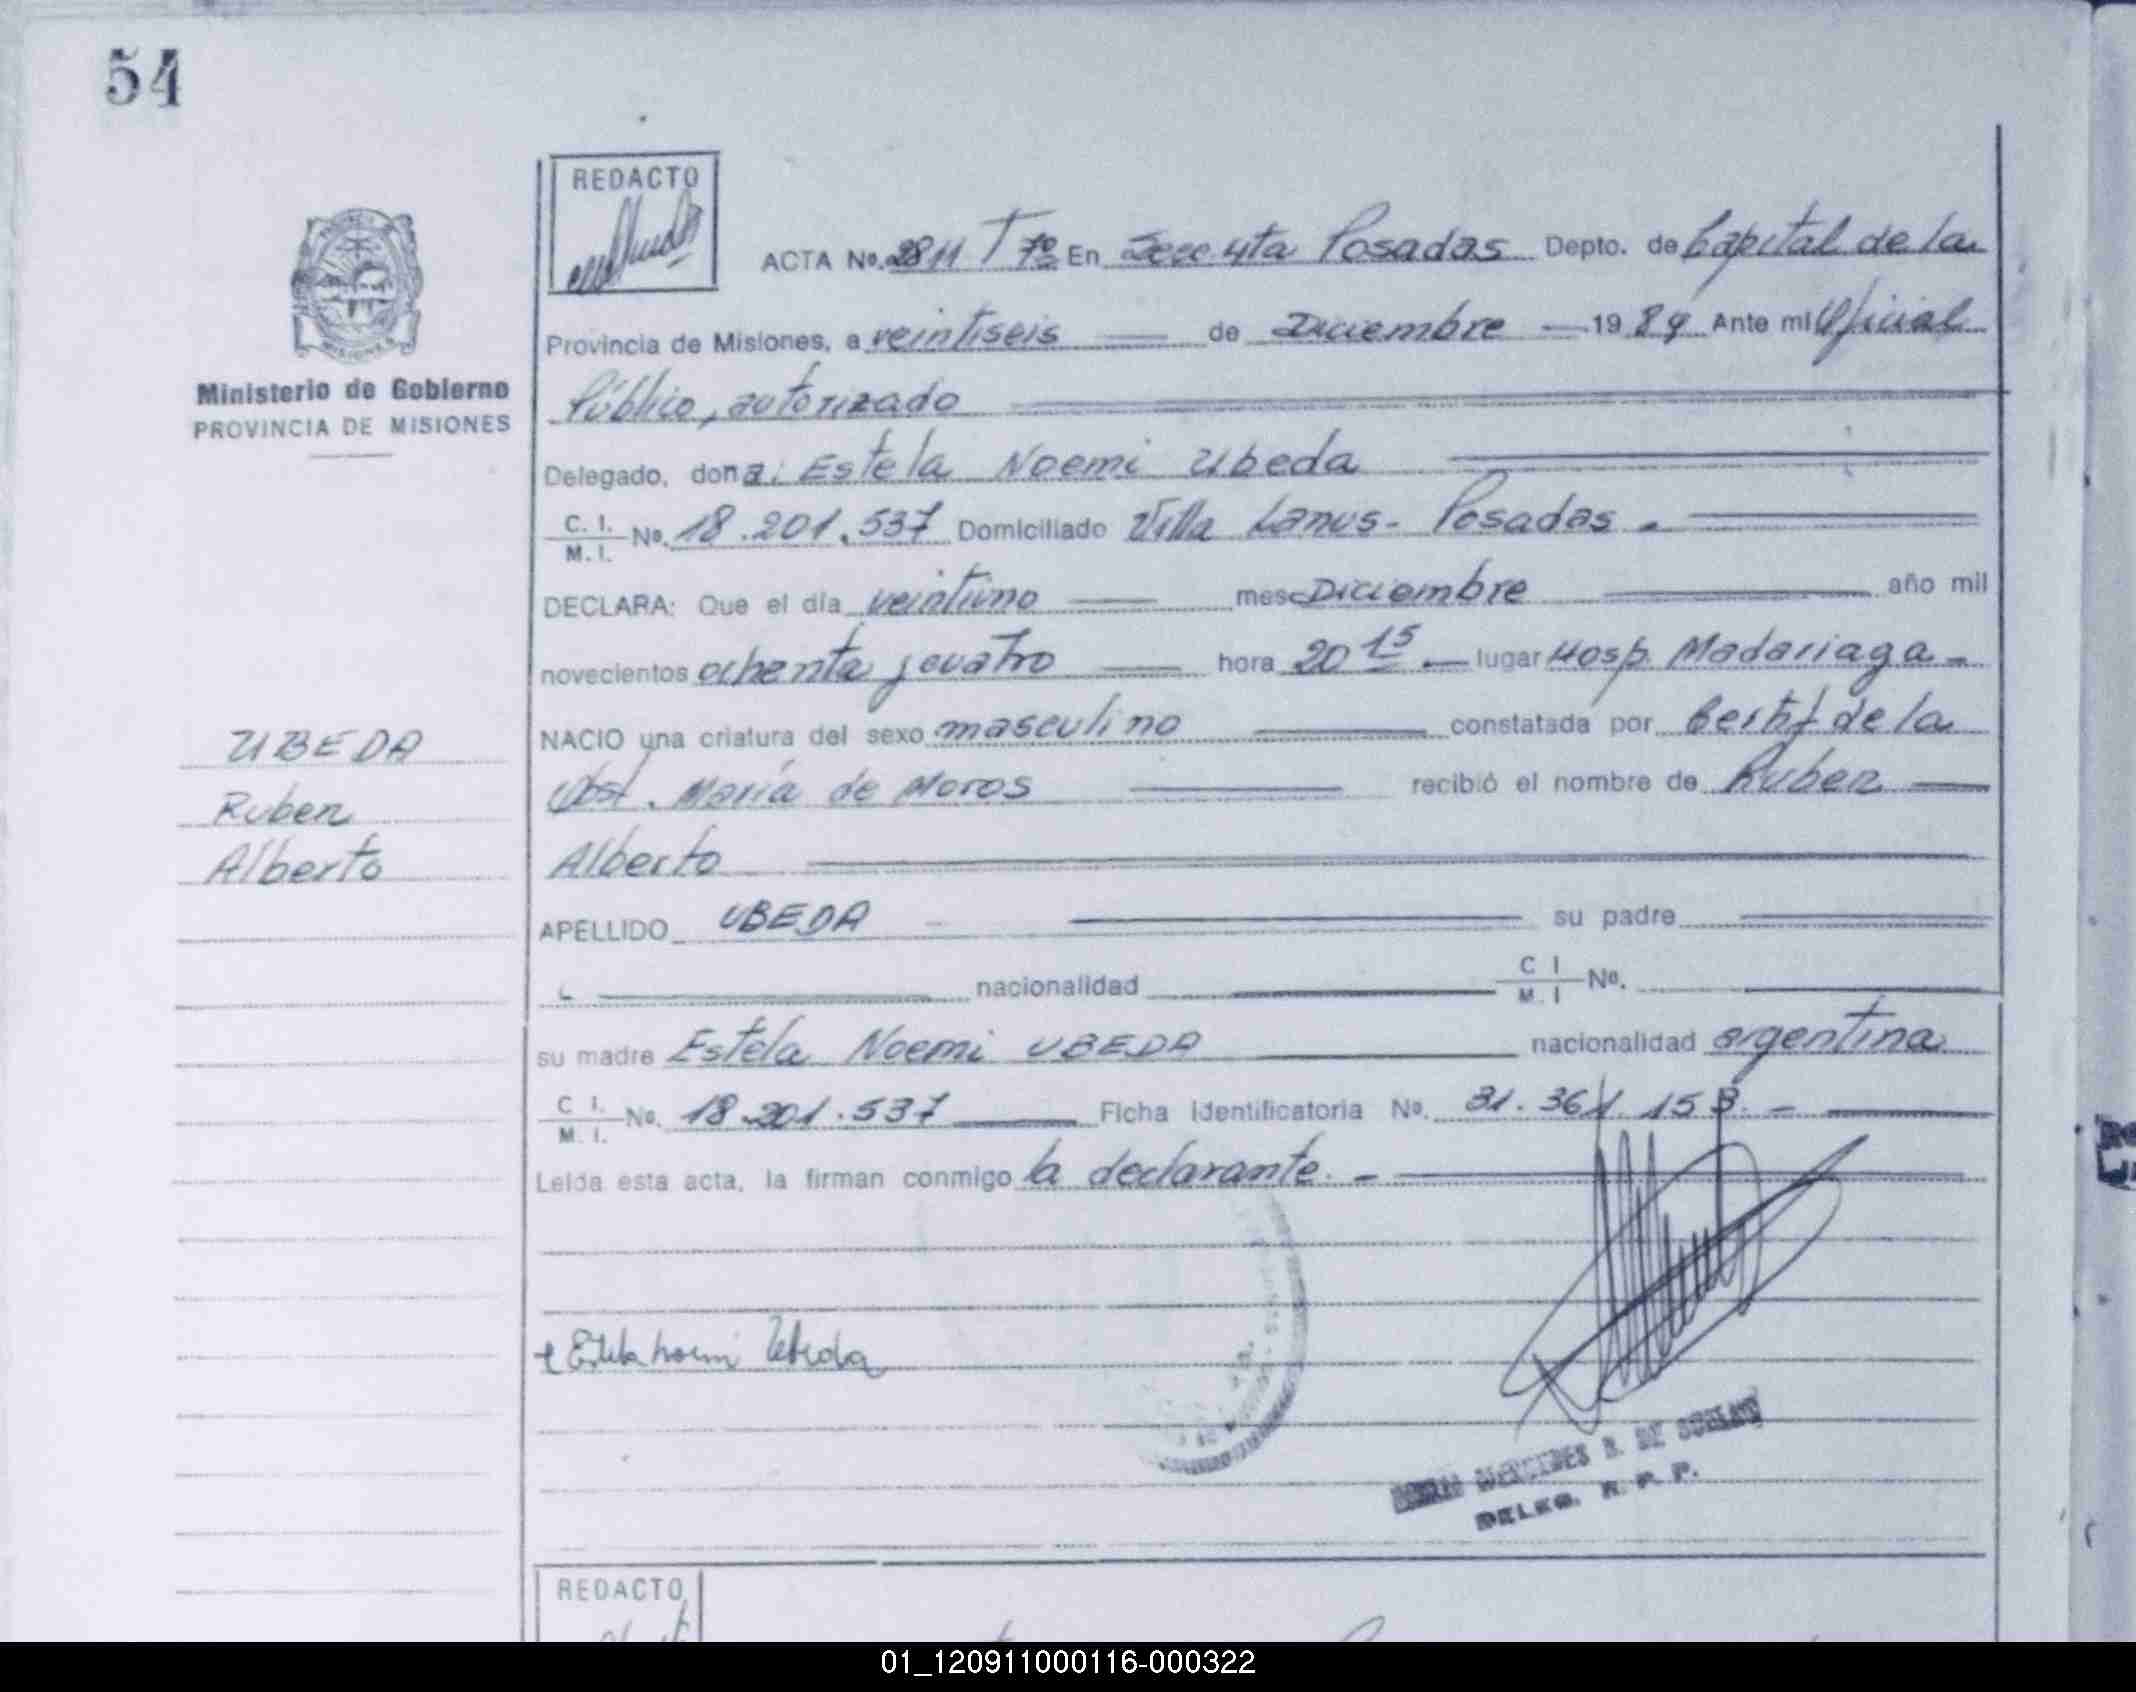 54
REDACTO
ACTA No. 2811 T 7º En Secc 4ta Posadas Depto. de Capital de la
Ministerio de Gobierno
PROVINCIA DE MISIONES
Provincia de Misiones, a veintiseis de Diciembre 1984 Ante mi Oficial
Público, autorizado
Delegado, dona: Estela Noemi Ubeda
C. I. M. I. No. 18.201.537 Domiciliado Villa Lanus - Posadas.-
DECLARA: Que el día veintiuno mes Diciembre año mil
novecientos ochenta y cuatro hora 20 15 lugar Hosp. Madariaga -
NACIO una criatura del sexo masculino constatada por Certif de la
Obst. María de Moros recibió el nombre de Ruben
Alberto
UBEDA
Ruben
Alberto
APELLIDO UBEDA su padre
nacionalidad C I M. I No.
su madre Estela Noemi UBEDA nacionalidad argentina
C I. M. I. No. 18.201.537 Ficha Identificatoria No. 31.361.153.-
Leída esta acta, la firman conmigo la declarante.-
Estela Noemi Ubeda
MERCEDES R. DE
DELEG. R. P. P.
REDACTO
01_120911000116-000322